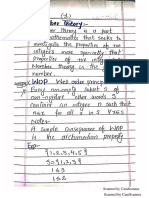 (1)
Number Theory:-
Number theory is a part
of mathematics that seeks to
investigate the properties of the
integers more specially that
properties of the integers
Number theory is the
number.
WOP Well order principle
Every non-empty subset of
non-negative other words S
contain an integer a such that
a≤x for all x is a
x∈S
Notes:-
A simple consequence of WOP
is the archimedean property
Exp:-
{1,2,3,4,5}
S={1,2,3,9}
1≤3
1≤2
Scanned by CamScanner
Scanned by CamScanner